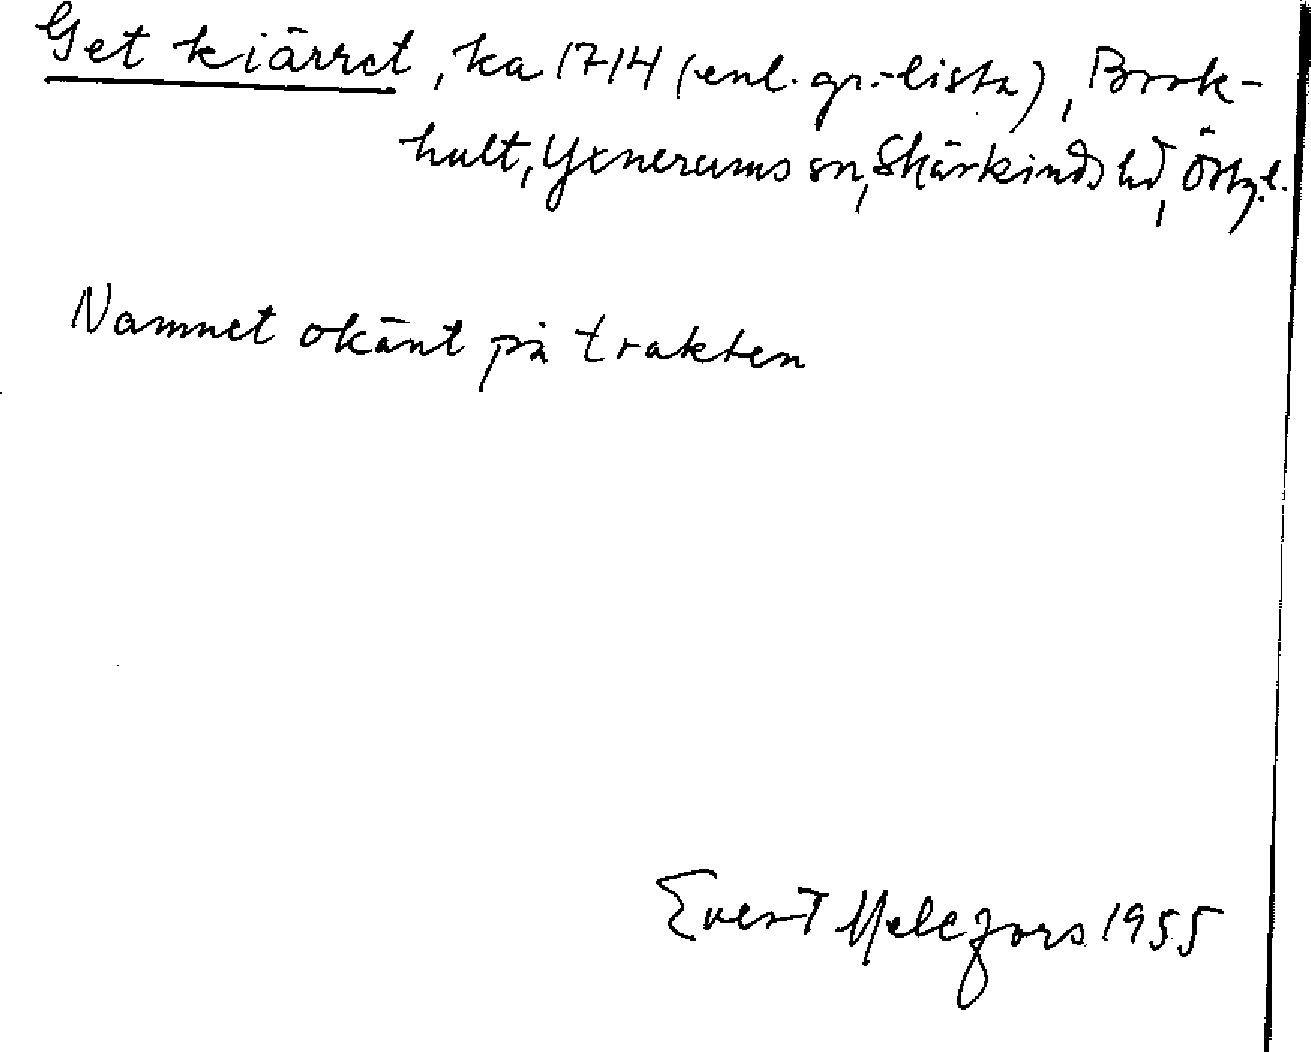 Get kiärret, ka 1714 (enl. gr.-lista), Brok-
hult, Yxnerums sn, Skärkinds hd, Östg.l.
Namnet okänt på trakten
Evert Melefors 1955